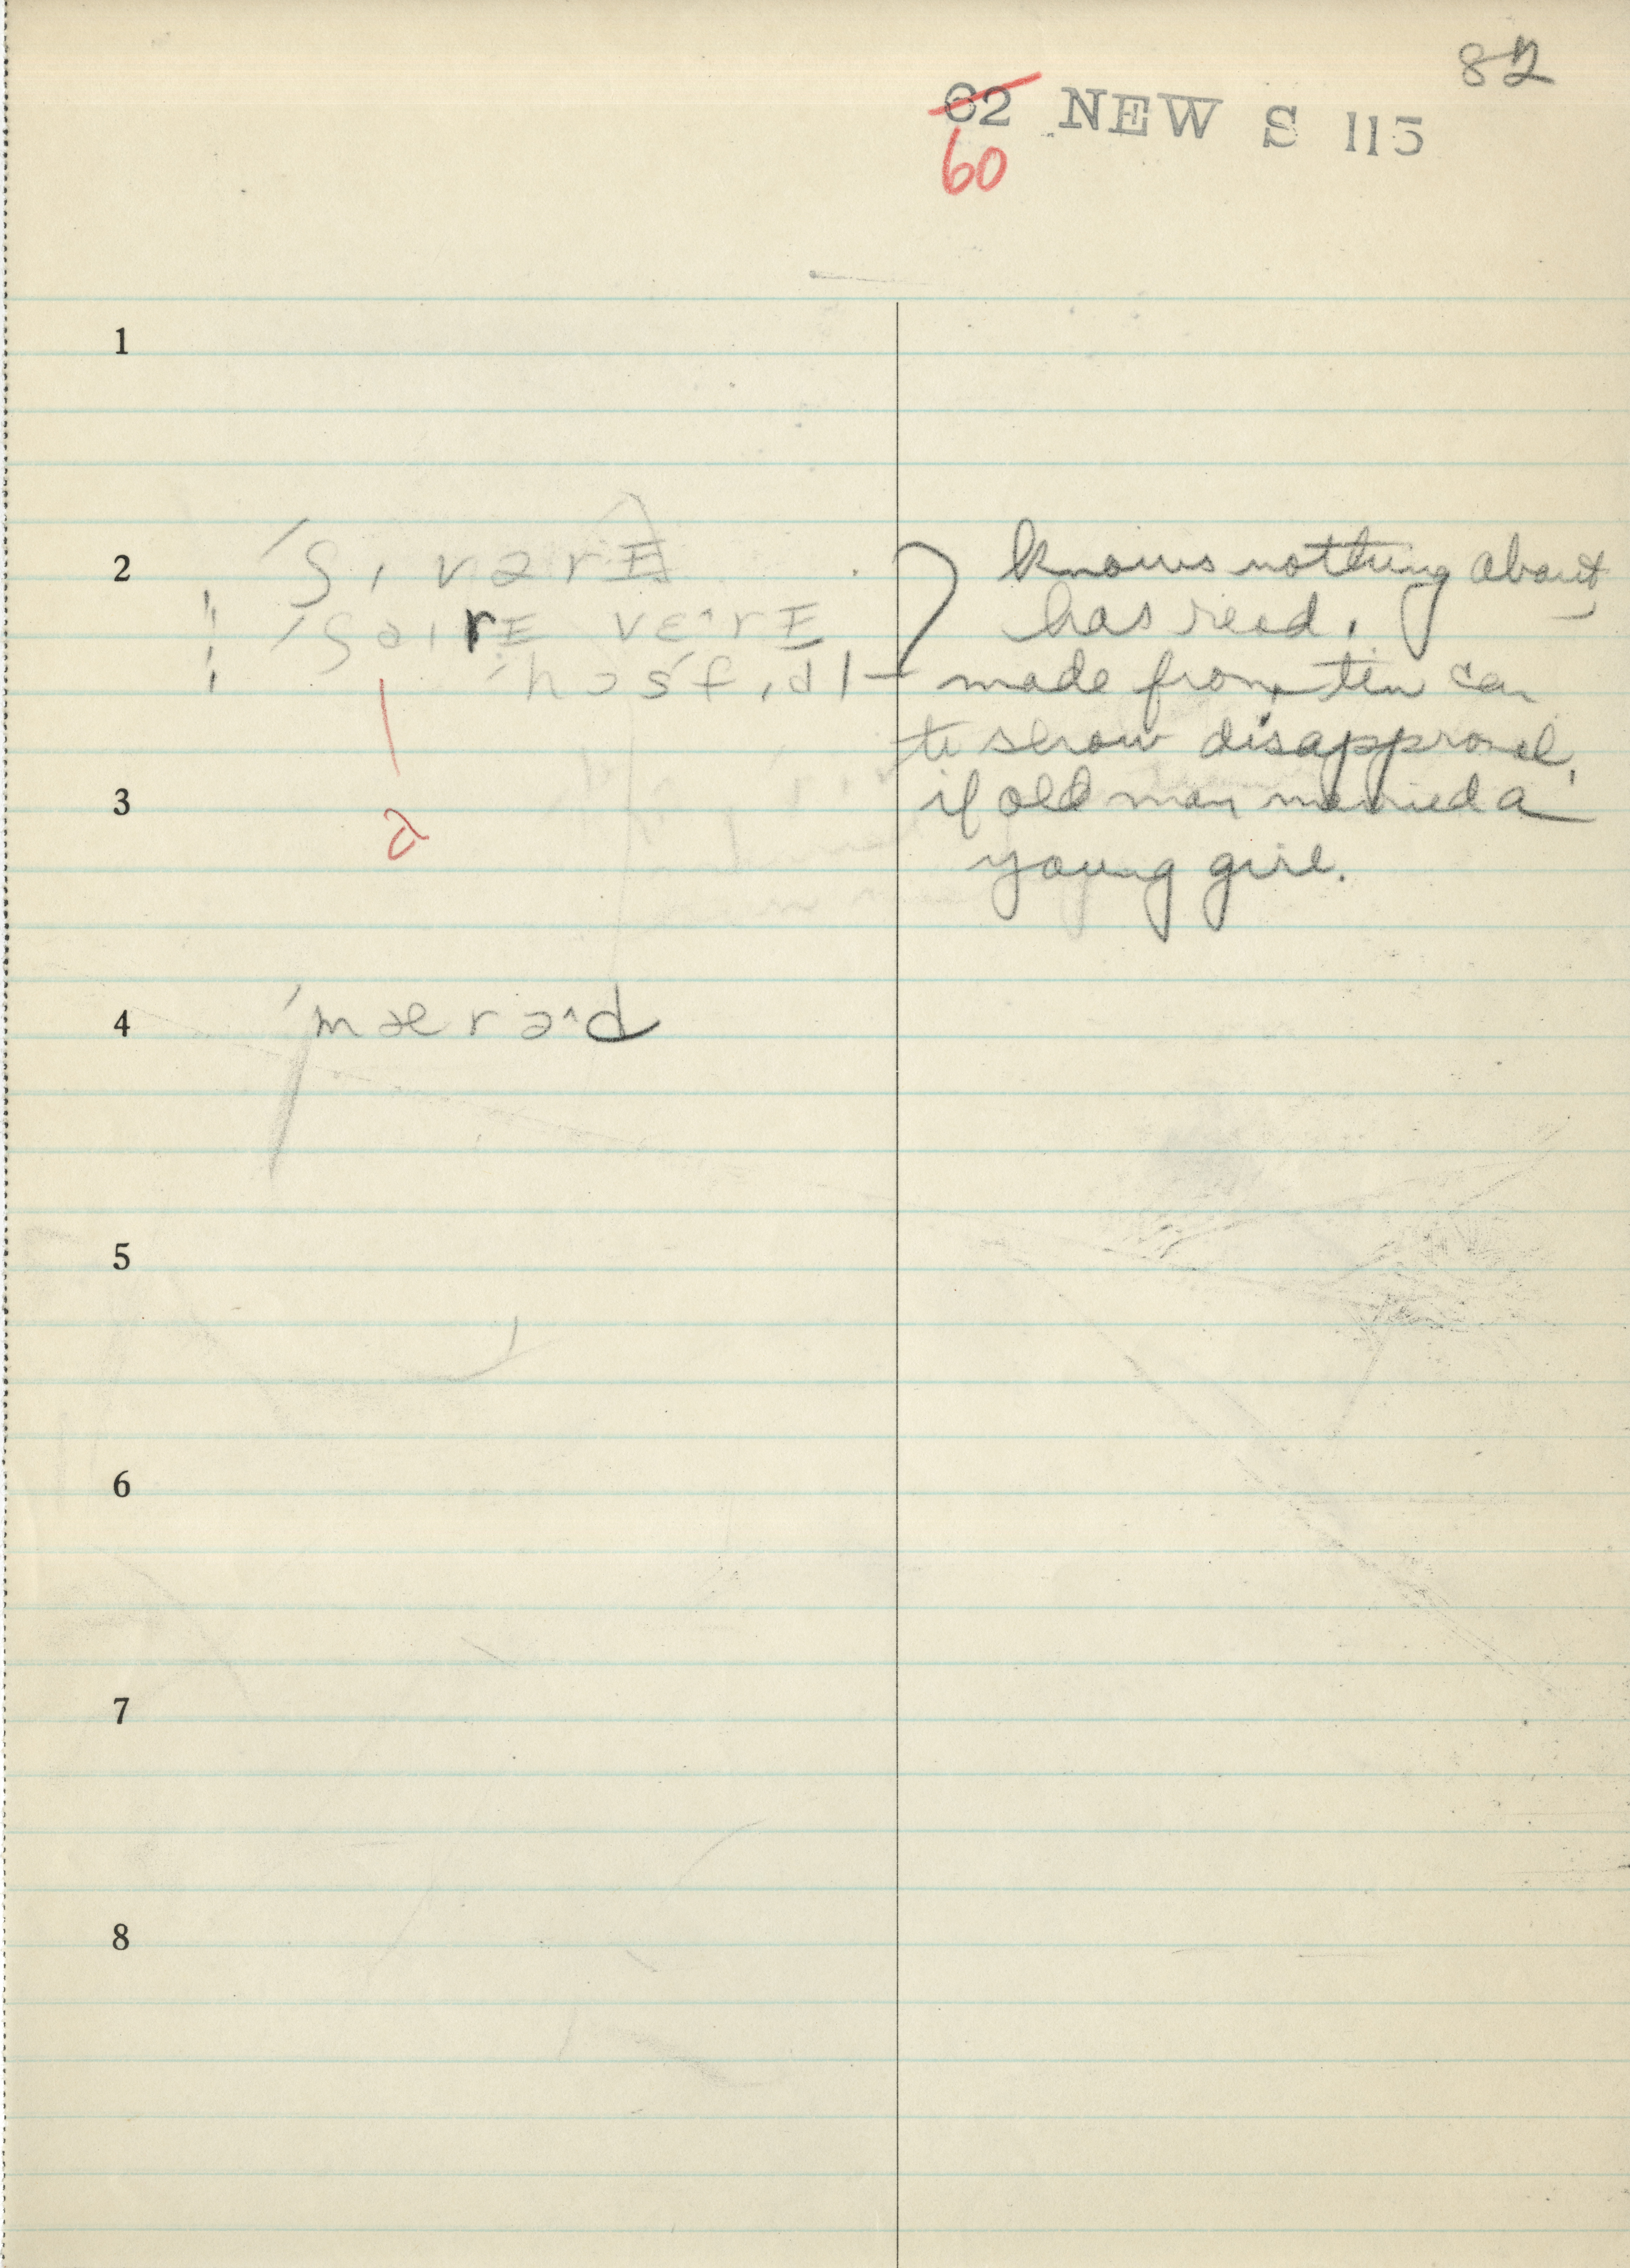 82
62 NEW S 115
60
1
2 ˈʃɪvərɪ knows nothing about
has read.
ˈhɔsˈfɪdl made from tin can
to show disapproval,
3 if old man married a
ə young girl.
4 ˈmærəˆd
5
6
7
8